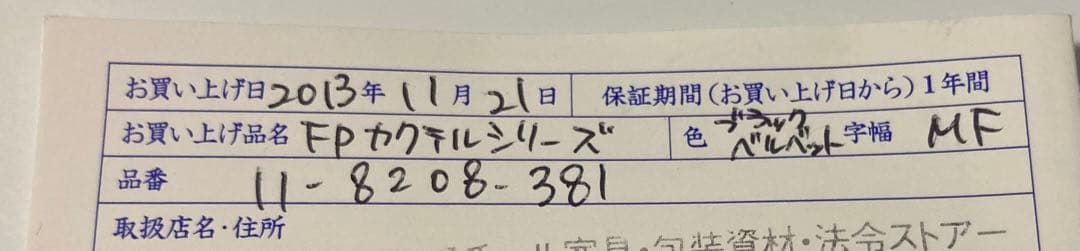 お買い上げ日2013年11月21日 保証期間(お買い上げ日から)1年間
お買い上げ品名 FPカクテルシリーズ 色 ブラックベルベット 字幅 MF
品番 11-8208-381
取扱店名・住所
具・包装資材・法令ストアー